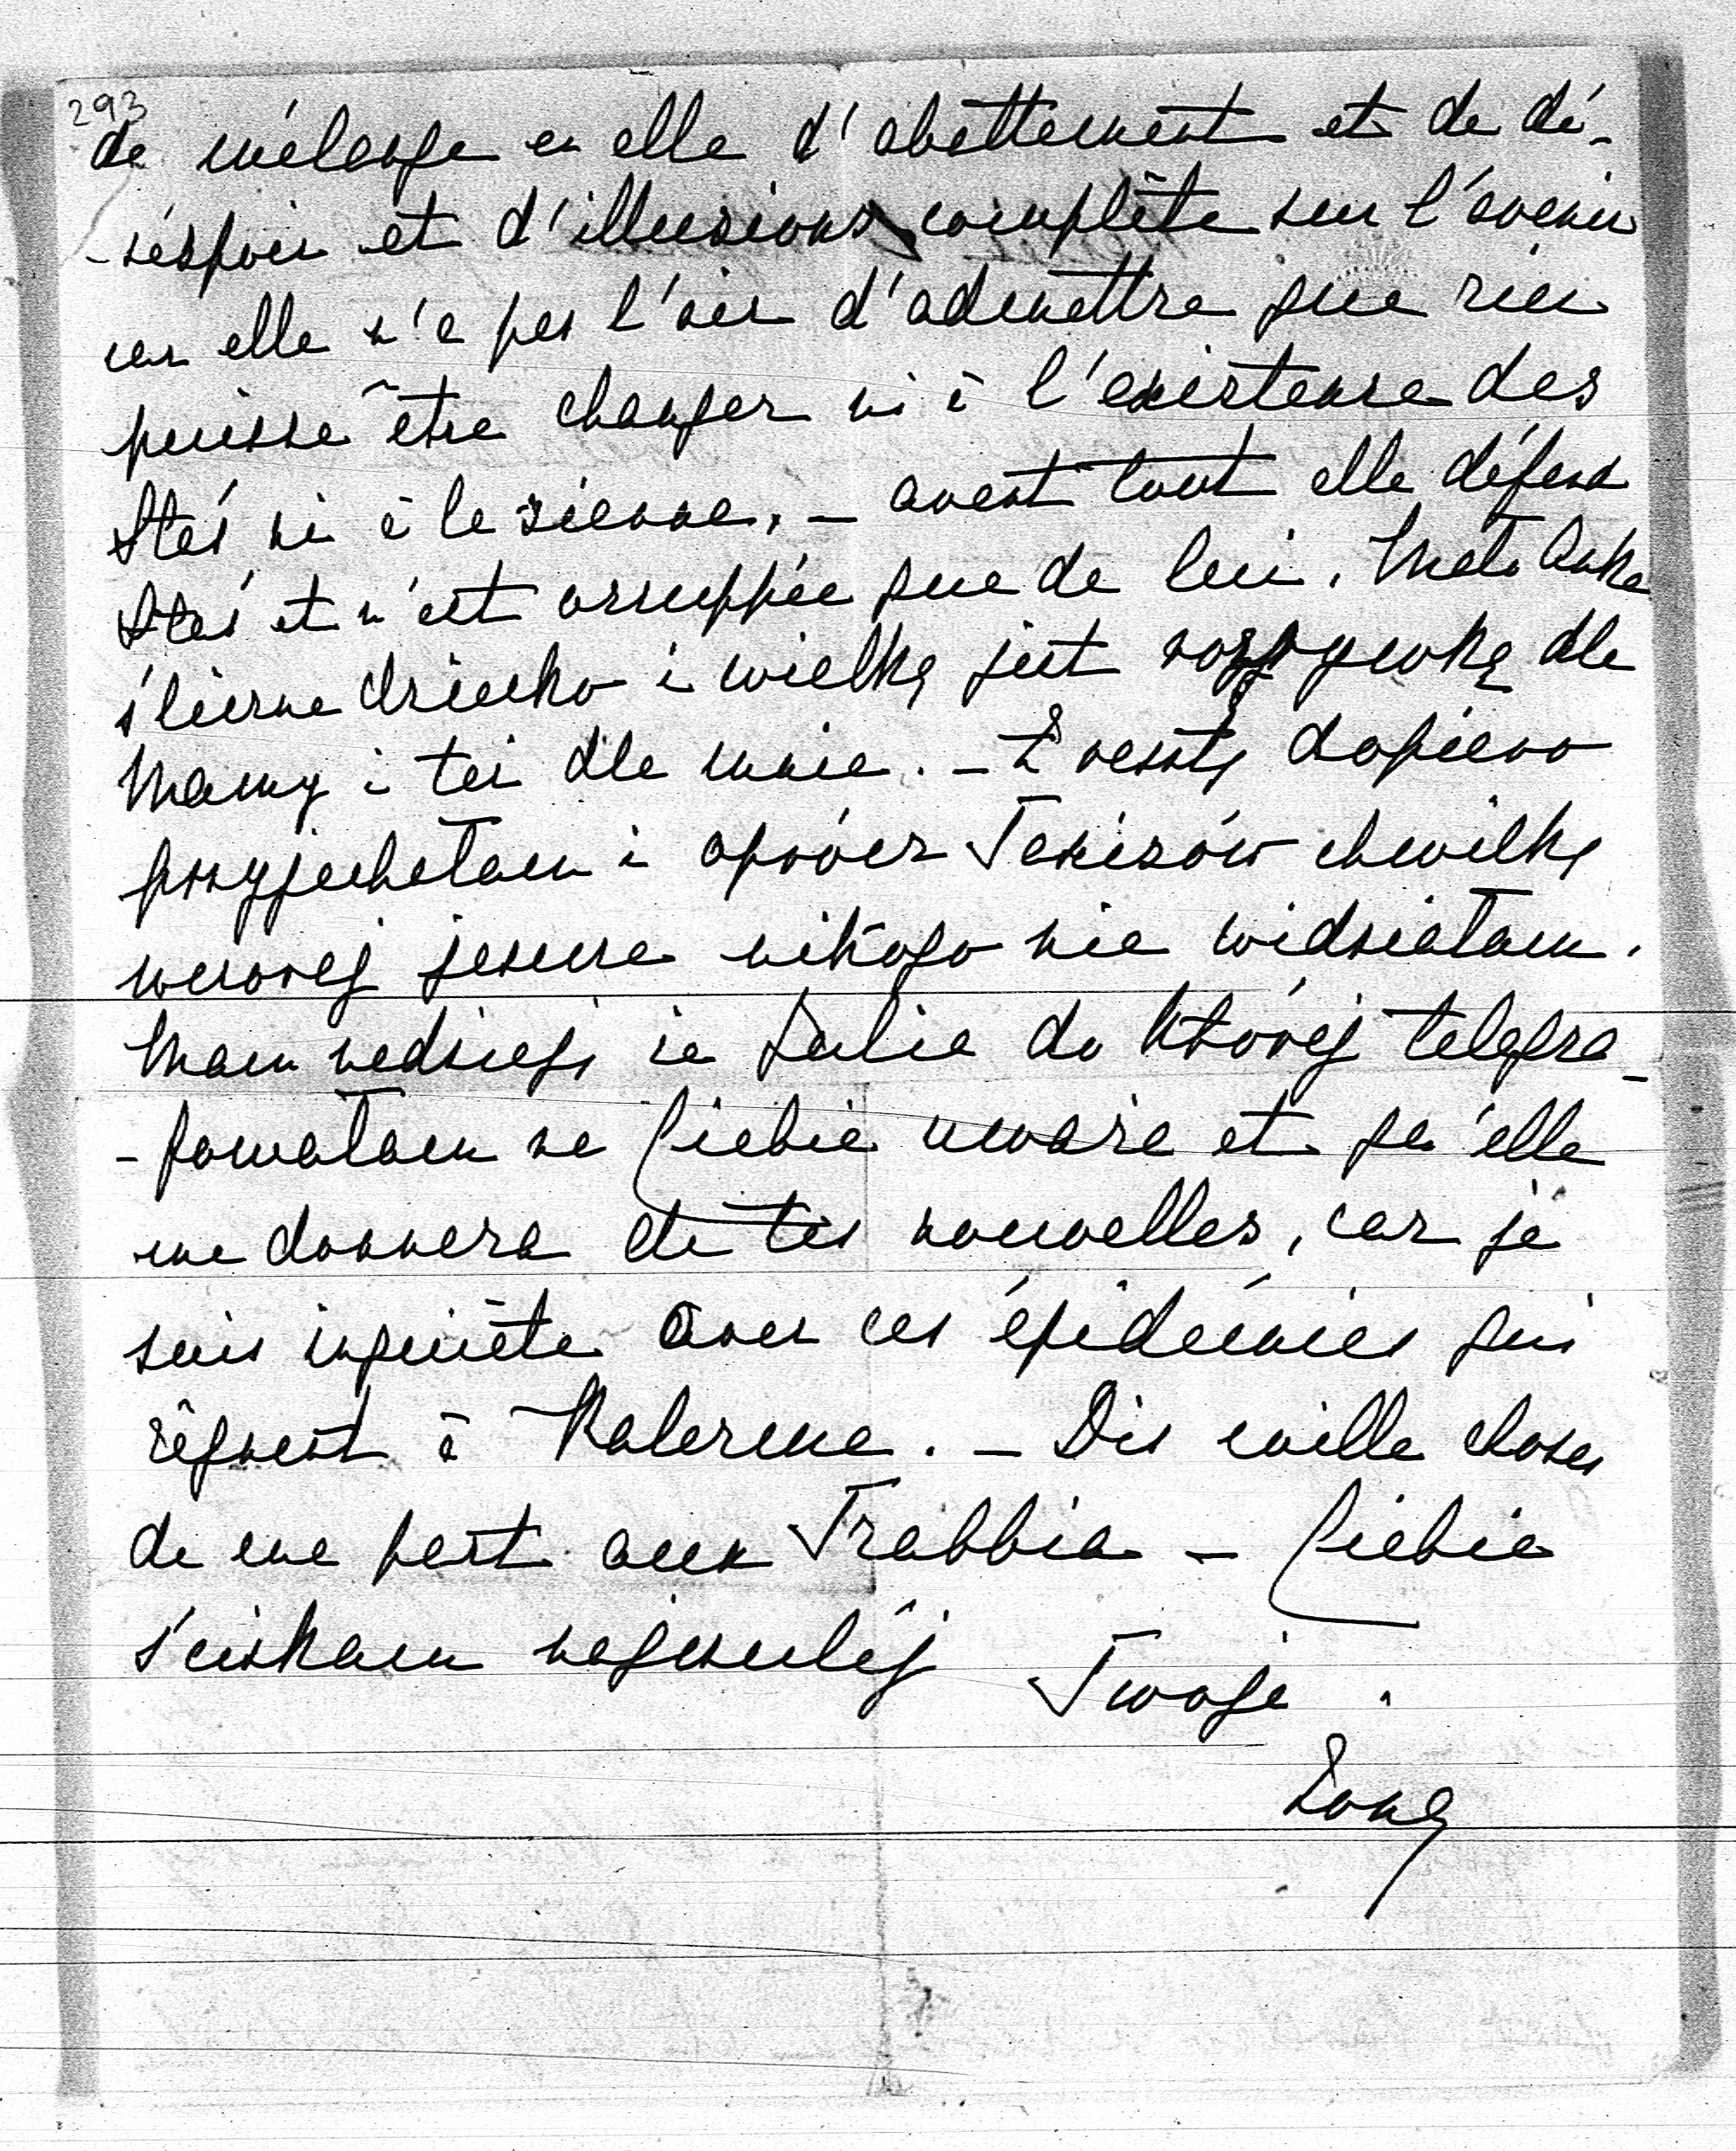 293
de mélange en elle d'abattement et de dé-
-sespoir et d'illusions complète sur l'avenir
car elle n'a pas l'air d'admettre que rien
puisse être changer ni à l'existence des
Staś ni à la sienne, – avant tout elle défend
Staś et n'est occuppée que de lui. Mała
śliczne dziecko i wielką jest rozrywką dla
Mamy i tei dla mnie. – Zresztą dopiero
przyjechałam i oprócz chwilkę
wczoraj jeszcze nikogo nie widziałam.
Mam nadzieję że Julie do której telegra-
-fowałam na Ciebie uważa et qu'elle
me donnera de tes nouvelles, car je
suis inquiète avec ces épidémies qui
règnent à Palerme. – Dis mille choses
de ma part aux Trabbia – Ciebie
ściskam najczulej Twoja